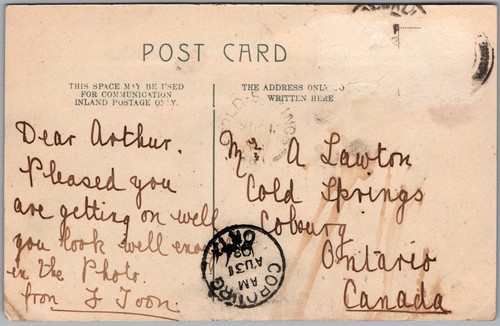 POST CARD
THIS SPACE MAY BE USED
FOR COMMUNICATION
INLAND POSTAGE ONLY.
THE ADDRESS ONLY TO
WRITTEN HERE
Dear Arthur.
Pleased you
are getting on well
you look well
in the Photo.
from J Toon.
Mr A Lawton
Cold Springs
Cobourg
Ontario
Canada
COLD-S
COBOURG
AM
AU 31
ONT